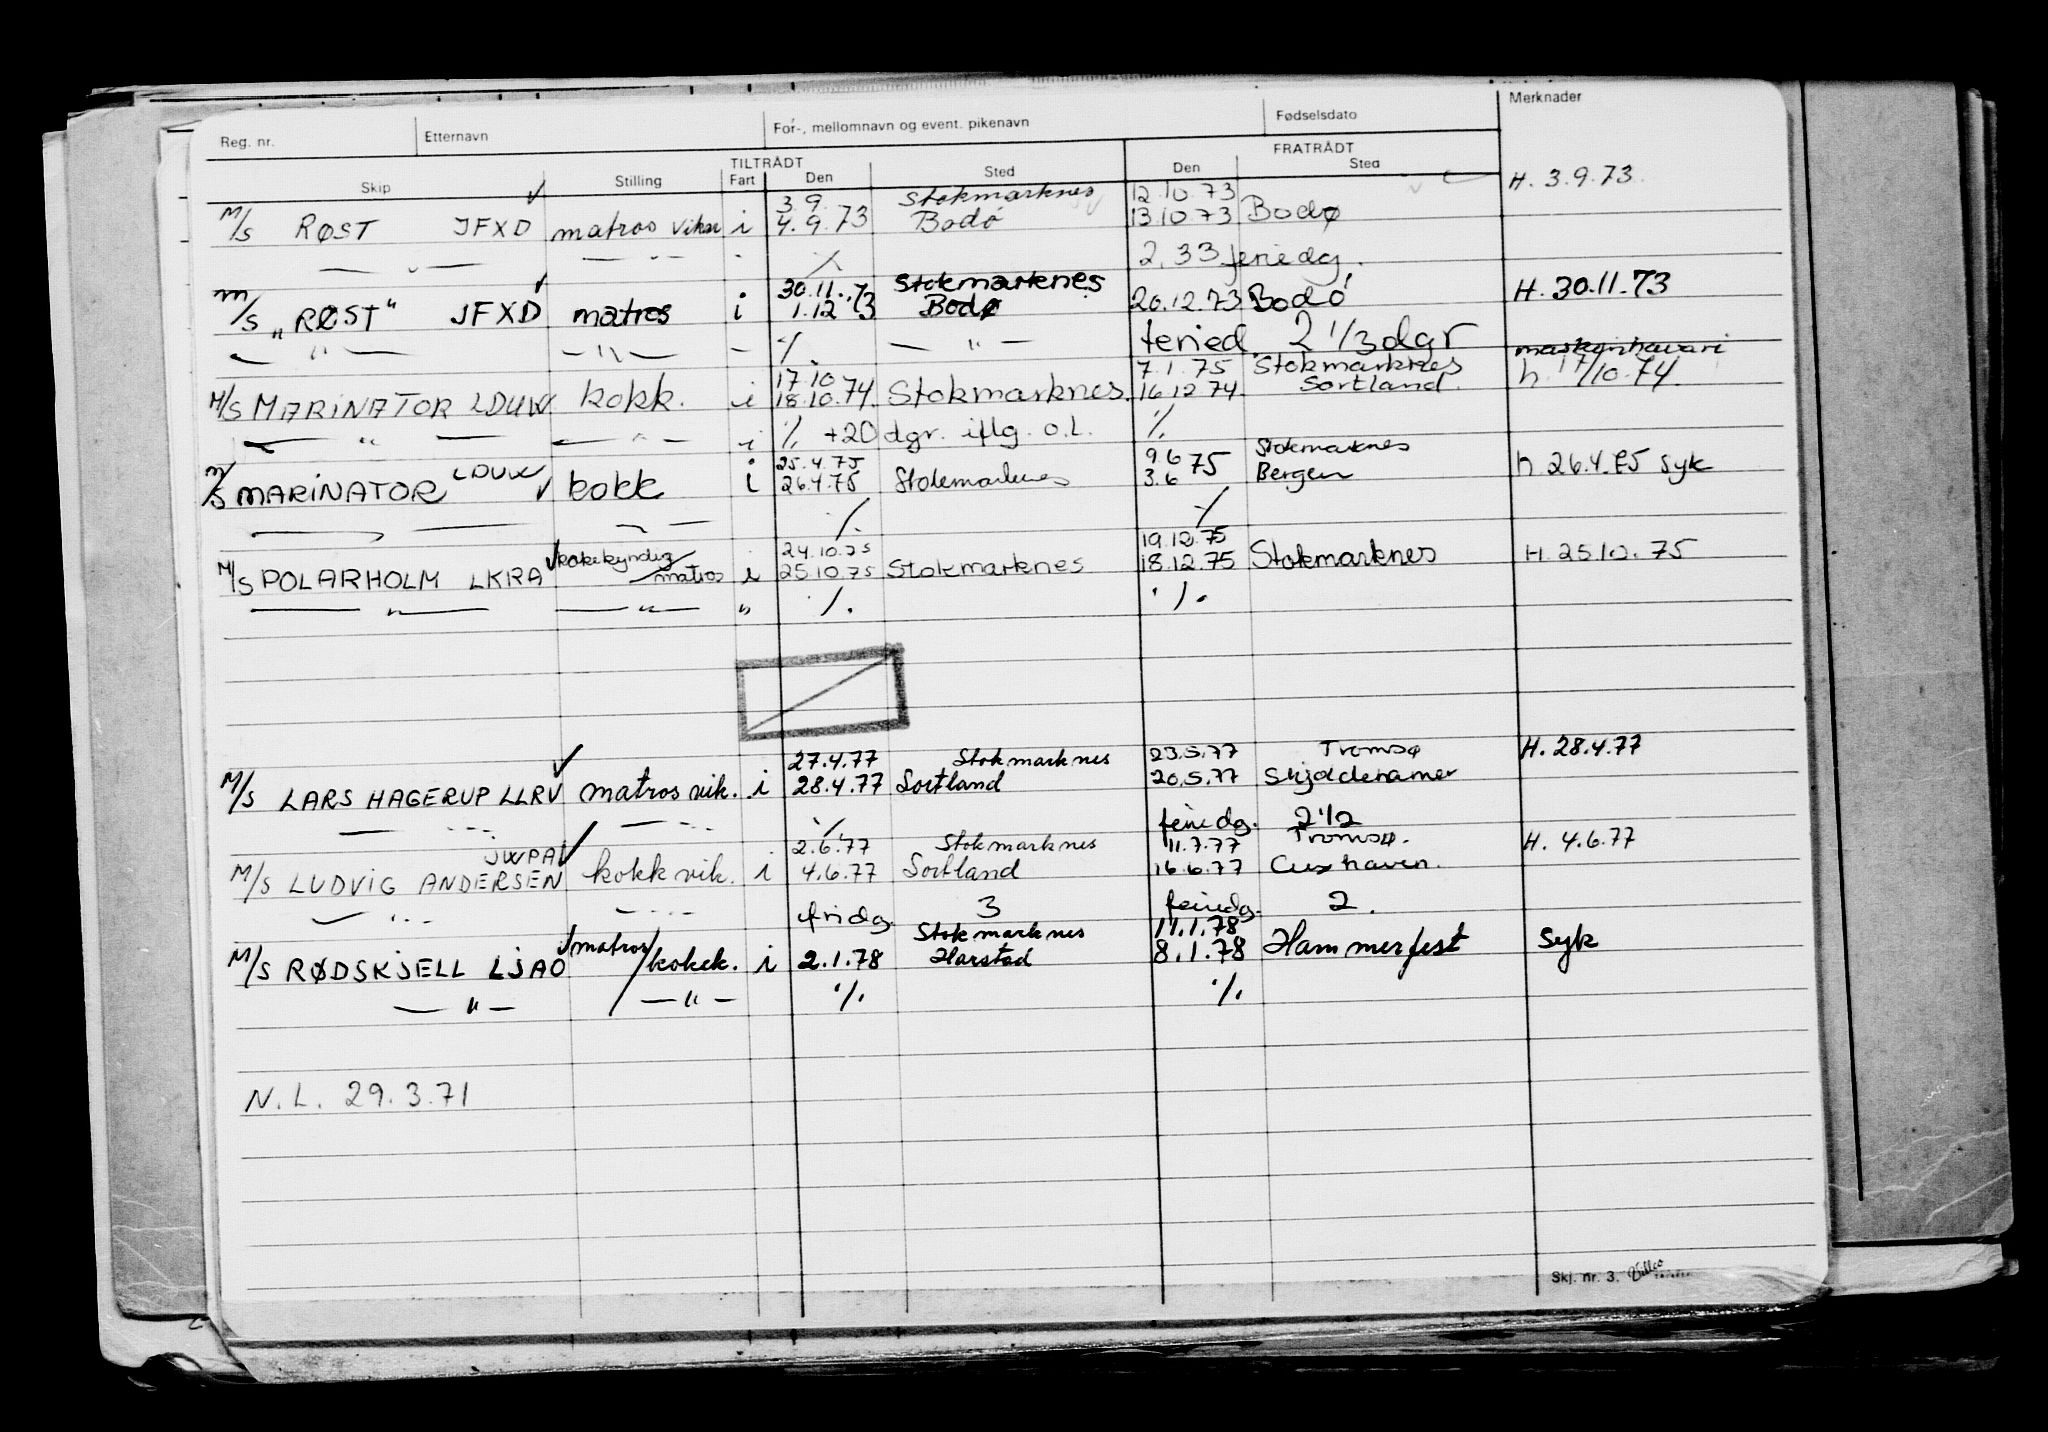 Reg. nr. Etternavn For-, mellomnavn og event. pikenavn Fødselsdato Merknader
TILTRÅDT FRATRÅDT
Skip Stilling Fart Den Sted Den Sted
3.9. Stokmarknes 12.10.73 H. 3.9.73
M/S RØST JFXD matros vikar i 4.9.73 Bodø 13.10.73 Bodø
— " — — " — - ⁒ 2,33 feriedg.
30.11.73 Stokmarknes H. 30.11.73
M/S "RØST" JFXD matros i 1.12.73 Bodø 20.12.73 Bodø
— " — — " — - ⁒ — " — feried. 2 1/3 dgr maskinhavari
17.10 7.1.75 Stokmarknes h. 17/10.74
M/S MARINATOR LDUW kokk. i 18.10.74 Stokmarknes. 16.12.74. Sortland.
— " — — " — i ⁒ +20 dgr. iflg. o.l. ⁒
LDUW 25.4.75 9.6 Stokmarknes
M/S MARINATOR kokk i 26.4.75 Stokmarknes 3.6 75 Bergen h 26.4.75 syk
— — — — ⁒ ⁒
kokekyndig 24.10.75 19.12.75
M/S POLARHOLM LKRA /matros i 25.10.75 Stokmarknes 18.12.75 Stokmarknes H. 25.10.75
— " — — " — " ⁒ ⁒
27.4.77 Stokmarknes 23.5.77 Tromsø H. 28.4.77
M/S LARS HAGERUP LLRV matros vik. i 28.4.77 Sortland 20.5.77 Skjoldehamer
— " — — " — ⁒ feriedg. 2 1/2
JWPA 2.6.77 Stokmarknes 11.7.77 Tromsø. H. 4.6.77
M/S LUDVIG ANDERSEN kokk vik. i 4.6.77 Sortland 16.6.77 Cuxhaven.
— " — — " — fridg. 3 feriedg. 2.
matros Stokmarknes 11.1.78
M/S RØDSKJELL LJAO /kokek. i 2.1.78 Harstad 8.1.78 Hammerfest Syk
— " — / — " — ⁒ ⁒
N.L. 29.3.71
Skj. nr. 3.